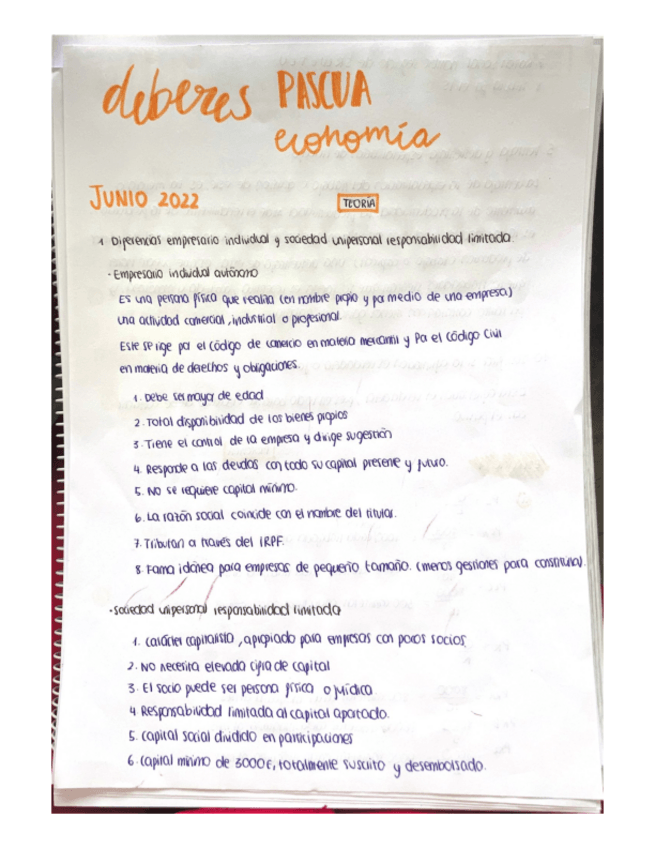 deberes PASCUA
economía
JUNIO 2022
TEORIA
1 Diferencias empresario individual y sociedad unipersonal responsabilidad limitada
· Empresario individual autónomo
Es una persona física que realiza (en nombre propio y por medio de una empresa)
una actividad comercial, industrial o profesional.
Este se rige por el Código de comercio en materia mercantil y Por el Código Civil
en materia de derechos y obligaciones.
1. Debe ser mayor de edad
2. Total disponibilidad de los bienes propios
3. Tiene el control de la empresa y dirige su gestión
4. Responde a las deudas con todo su capital presente y futuro.
5. No se requiere capital mínimo.
6. La razón social coincide con el nombre del titular.
7. Tributan a través del IRPF.
8. Forma idónea para empresas de pequeño tamaño. (menos gestiones para constituirla).
· Sociedad unipersonal responsabilidad limitada
1. Carácter capitalista, apropiado para empresas con pocos socios
2. No necesita elevada cifra de capital
3. El socio puede ser persona física o jurídica
4. Responsabilidad limitada al capital aportado.
5. Capital social dividido en participaciones
6. Capital mínimo de 3000€, totalmente suscrito y desembolsado.